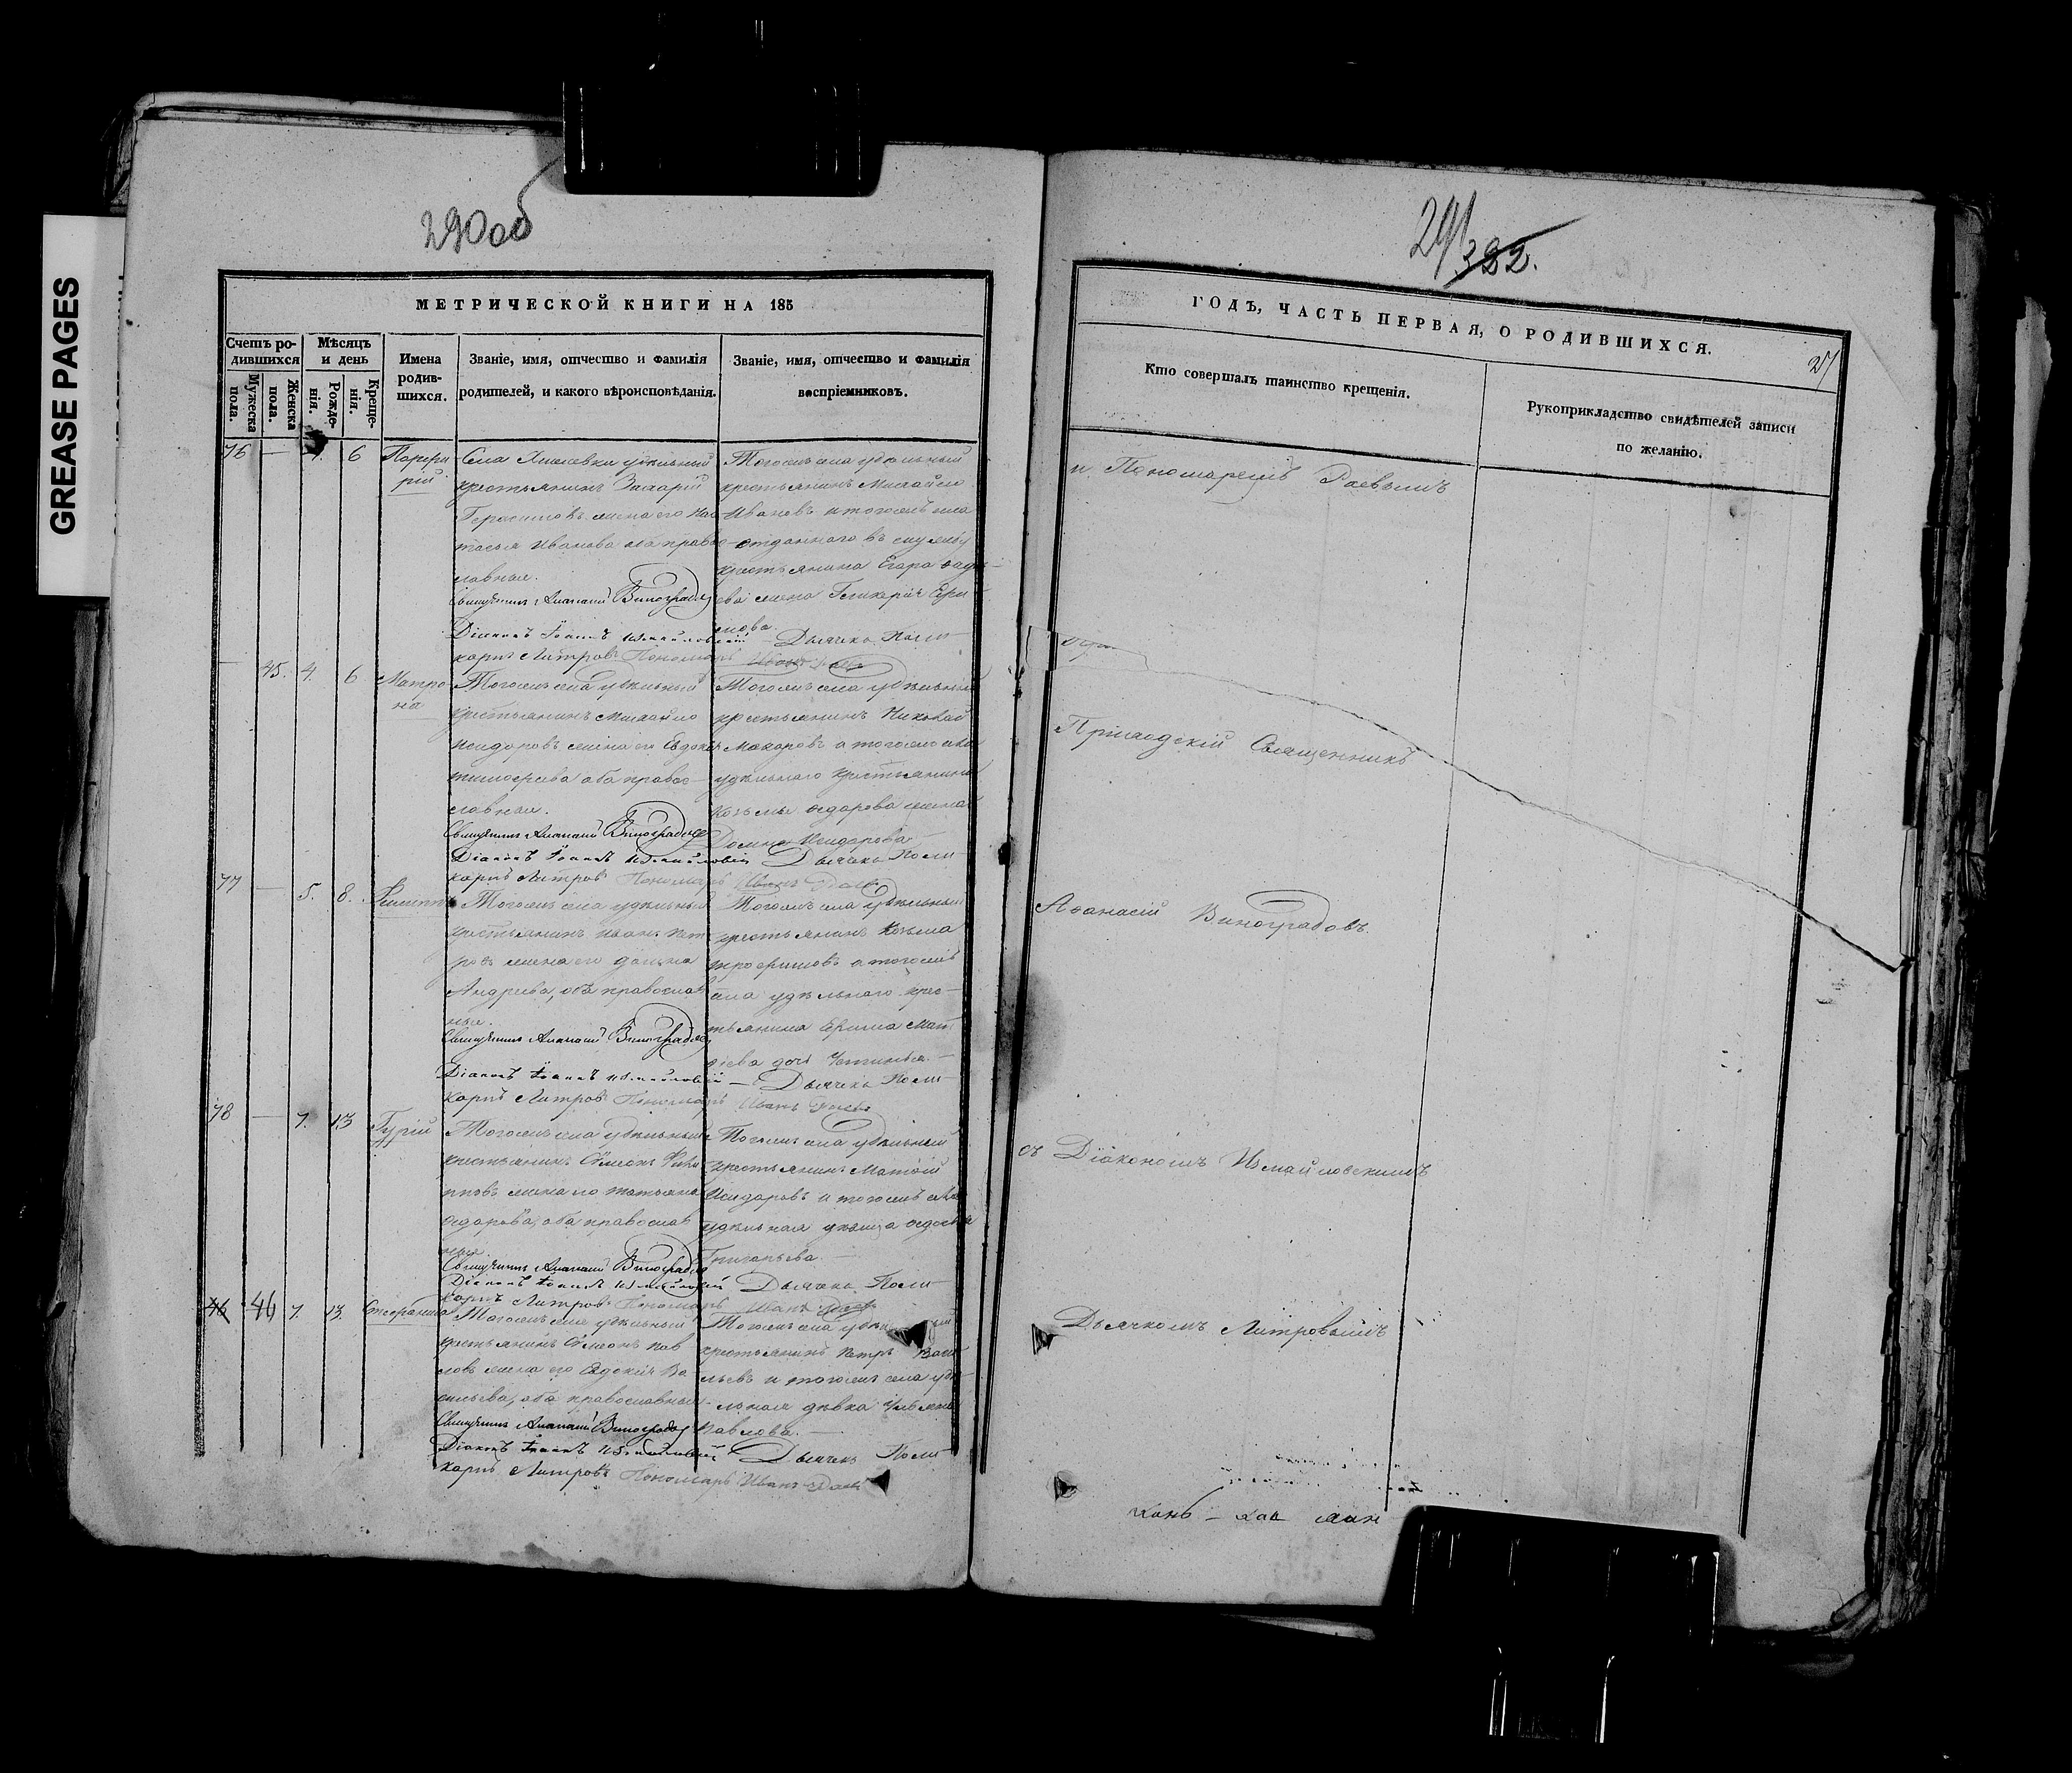 GREASE PAGES
290об
МЕТРИЧЕСКОЙ КНИГИ НА 185
Счетъ ро-
дившихся
Мужеска
пола.
Женска
пола.
Мѣсяцъ
и день
Рожде-
нія.
Креще-
нія.
Имена
родив-
шихся.
Званіе, имя, отчество и фамилія
родителей, и какого вѣроисповѣданія.
Званіе, имя, отчество и фамилія
воспріемниковъ.
76 — 6 Порфи
рій
Села удѣльный
крестьянинъ Захарій
Герасимовъ жена его Нас
тасья Иванова оба право
славныя.
Священникъ Афанасій Виноградов
Діаконъ Іоаннъ Измайловскій
карпъ Литровъ Пономарь
Тогожъ села удѣльный
крестьянинъ Михайло
Ивановъ и тогожъ села
отданнаго въ службу
крестьянина Егора
ева жена Гликерія Ефи
мова.
Дьячекъ Поли
Иванъ Раевъ
— 45. 4. 6 Матро
на
Тогожъ села удѣльный
крестьянинъ Михайло
Исидоровъ жена его Евдокія
Тимофеева оба правос
лавныя.
Священникъ Афанасій Виноградов
Діаконъ Іоаннъ Измайловскій
карпъ Литровъ Пономарь
Тогожъ села удѣльный
крестьянинъ Николай
Макаровъ а тогожъ села
удѣльнаго крестьянина
Козьмы Ѳедорова жена
Домна Исидорова
Дьячекъ Поли
Иванъ Раевъ
77 — 5. 8. Филиппъ
Тогожъ села удѣльный
крестьянинъ Иванъ Пет
ровъ жена его Домна
Андреева, оба православ
ныя.
Священникъ Афанасій Виноградов
Діаконъ Іоаннъ Измайловскій
карпъ Литровъ Пономарь
Тогожъ села удѣльный
крестьянинъ Козьма
Трофимовъ а тогожъ
села удѣльнаго крес-
тьянина Ефима Мат
ѳѣева дочь Устинья
Дьячекъ Поли
Иванъ Раевъ
78 — 7. 13 Гурій
Тогожъ села удѣльный
крестьянинъ Симеонъ Фили
пповъ жена его Татьяна
Ѳедорова, оба православ
ныя.
Священникъ Афанасій Виноградов
Діаконъ Іоаннъ Измайловскій
карпъ Литровъ Пономарь
Тогожъ села удѣльный
крестьянинъ Матвій
Исидоровъ и тогожъ села
удѣльная дѣвица Ѳедосья
Григорьева.
Дьячекъ Поли
Иванъ Раевъ
46 46 7. 13. Стефанида
Тогожъ села удѣльный
крестьянинъ Симеонъ Пав
ловъ жена его Евдокія Ва
сильева, оба православныя
Священникъ Афанасій Виноградов
Діаконъ Іоаннъ Измайловскій
карпъ Литровъ Пономарь
Тогожъ села удѣльный
крестьянинъ Петръ Васи
льевъ и тогожъ села удѣ-
льная дѣвка Ульяна
Павлова.
Дьячекъ Поли
Иванъ Раевъ
291
322.
ГОДЪ, ЧАСТЬ ПЕРВАЯ, О РОДИВШИХСЯ.
Кто совершалъ таинство крещенія.
Рукоприкладство свидѣтелей записи
по желанію.
и Пономаремъ Раевымъ
Приходскій Священникъ
Аѳанасій Виноградовъ
съ Діакономъ Измайловскимъ
Дьячкомъ Литровымъ